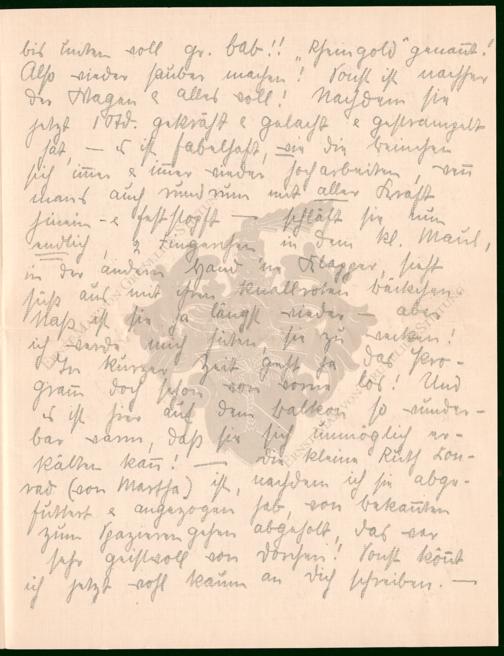 bis unten voll gr. bab!! „Rheingold" genannt!
Also wieder sauber machen! Sonst ist nachher
der Wagen & alles voll! Nachdem sie
jetzt 1 Std. gekräht & gelacht & gestrampelt
hat, — es ist fabelhaft, wie die beinchen
sich immer & immer wieder hocharbeiten, wenn
mans auch rund rum mit aller Kraft
hinein- & feststopft — schläft sie nun
endlich, 2 Fingerchen in dem kl. Maul,
in der anderen Hand 'ne Klapper, sieht
süß aus mit ihren knallroten bäckchen.
Naß ist sie ja längst wieder — aber
ich werde mich hüten, sie zu wecken!
In kurzer Zeit geht ja das Pro-
gramm doch schon von vorne los! Und
es ist hier auf dem balkon so wunder-
bar warm, daß sie sich unmöglich er-
kälten kann! — Die kleine Ruth Con-
rad (von Martha) ist, nachdem ich sie abge-
füttert & angezogen hab, von bekannten
zum Spazierengehen abgeholt, das war
sehr geistvoll von Dorchen! Sonst könnt
ich jetzt wohl kaum an Dich schreiben. —